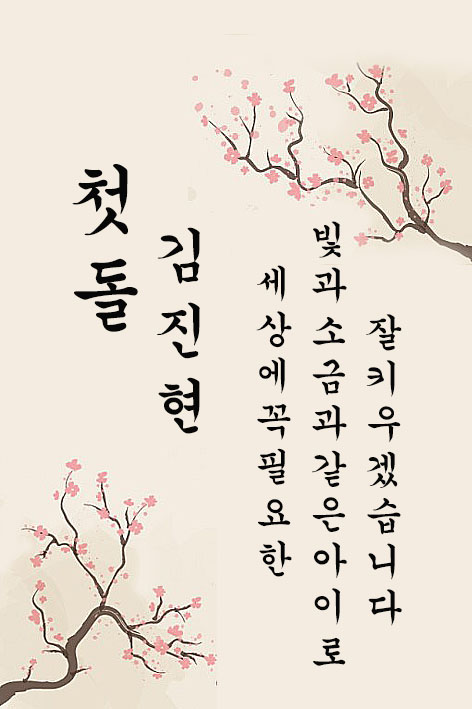 첫돌
김진현
세상에꼭필요한
빛과소금과같은아이로
잘키우겠습니다